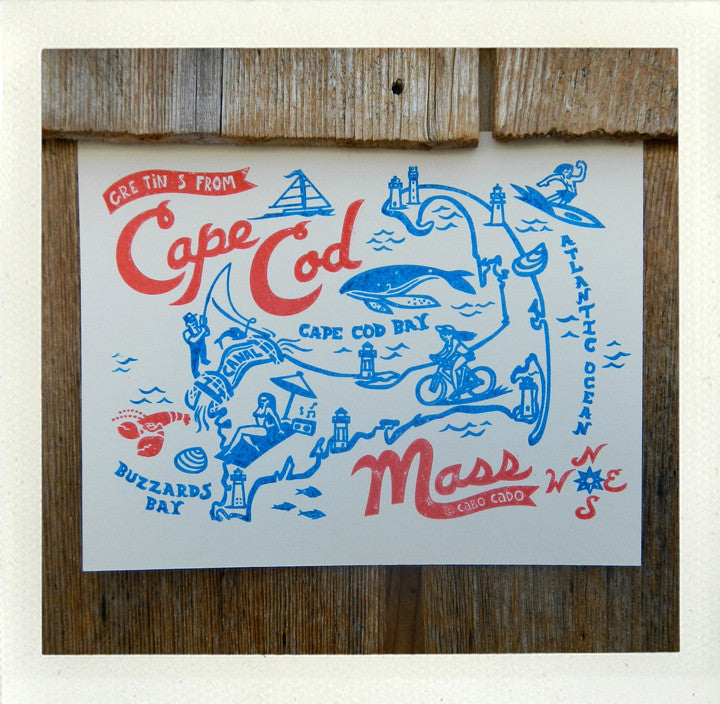 GRE TIN S FROM
Cape Cod
CAPE COD BAY
CANAL
ATLANTIC OCEAN
BUZZARDS
BAY
Mass
© CABO CADO
N
W E
S